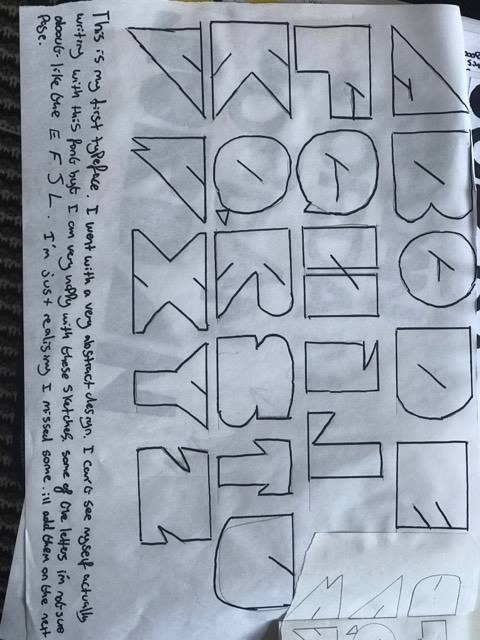 A B C D E
F G H I J
K Q R S T U
V W X Y Z
This is my first typeface. I went with a very abstract design. I can't see myself actually
writing with this font but I am very happy with these sketches, some of the letters im not sure
about like the E F J L. I'm just realising I missed some.. ill add them on the next
Page.